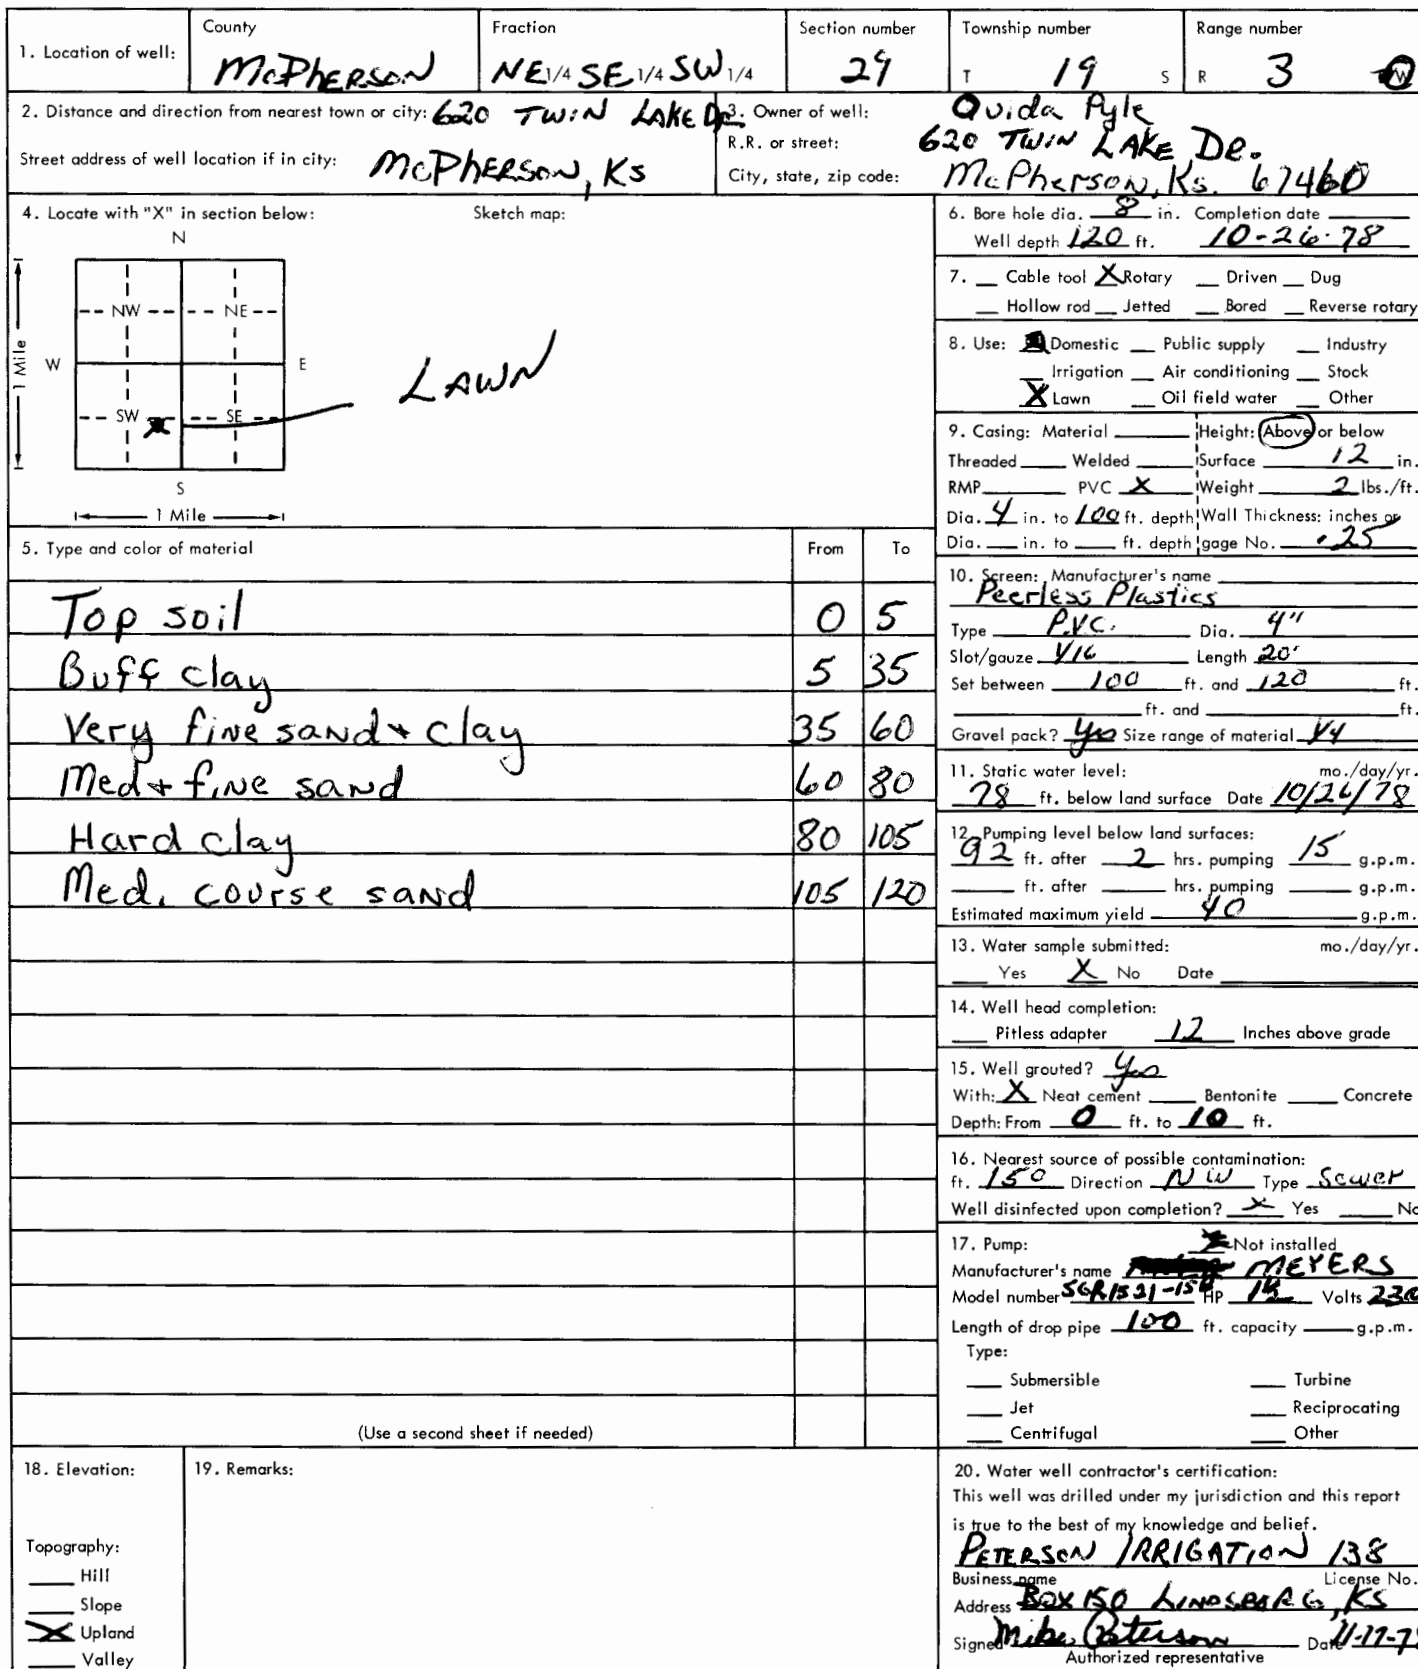 1. Location of well:
County
McPherson
Fraction
NE 1/4 SE 1/4 SW 1/4
Section number
29
Township number
T 19 S
Range number
R 3 W
2. Distance and direction from nearest town or city: 620 TWIN LAKE Dr.
Street address of well location if in city: McPHERSON, Ks
3. Owner of well: Ouida Pyle
R.R. or street: 620 TWIN LAKE Dr.
City, state, zip code: McPherson, Ks. 67460
4. Locate with "X" in section below:
Sketch map:
N
NW NE
W E
SW X SE
S
1 Mile
1 Mile
LAWN
5. Type and color of material From To
Top soil 0 5
Buff clay 5 35
Very fine sand + clay 35 60
Med + fine sand 60 80
Hard clay 80 105
Med. course sand 105 120
(Use a second sheet if needed)
6. Bore hole dia. 8 in. Completion date
Well depth 120 ft. 10-26-78
7. Cable tool X Rotary Driven Dug
Hollow rod Jetted Bored Reverse rotary
8. Use: Domestic Public supply Industry
Irrigation Air conditioning Stock
X Lawn Oil field water Other
9. Casing: Material Height: Above or below
Threaded Welded Surface 12 in.
RMP PVC X Weight 2 lbs./ft.
Dia. 4 in. to 100 ft. depth Wall Thickness: inches or
Dia. in. to ft. depth gage No. .25
10. Screen: Manufacturer's name
Peerless Plastics
Type P.V.C. Dia. 4"
Slot/gauze 1/16 Length 20'
Set between 100 ft. and 120 ft.
ft. and ft.
Gravel pack? Yes Size range of material 1/4
11. Static water level: mo./day/yr.
78 ft. below land surface Date 10/26/78
12. Pumping level below land surfaces:
92 ft. after 2 hrs. pumping 15 g.p.m.
ft. after hrs. pumping g.p.m.
Estimated maximum yield 40 g.p.m.
13. Water sample submitted: mo./day/yr.
Yes X No Date
14. Well head completion:
Pitless adapter 12 Inches above grade
15. Well grouted? Yes
With: X Neat cement Bentonite Concrete
Depth: From 0 ft. to 10 ft.
16. Nearest source of possible contamination:
ft. 150 Direction NW Type Sewer
Well disinfected upon completion? X Yes No
17. Pump: Not installed
Manufacturer's name MEYERS
Model number HP Volts 230
Length of drop pipe 100 ft. capacity g.p.m.
Type:
Submersible Turbine
Jet Reciprocating
Centrifugal Other
18. Elevation:
Topography:
Hill
Slope
X Upland
Valley
19. Remarks:
20. Water well contractor's certification:
This well was drilled under my jurisdiction and this report
is true to the best of my knowledge and belief.
PETERSON IRRIGATION 138
Business name License No.
Address BOX 150 LINDSBORG, KS
Signed Mike Peterson Date 11-17-7
Authorized representative